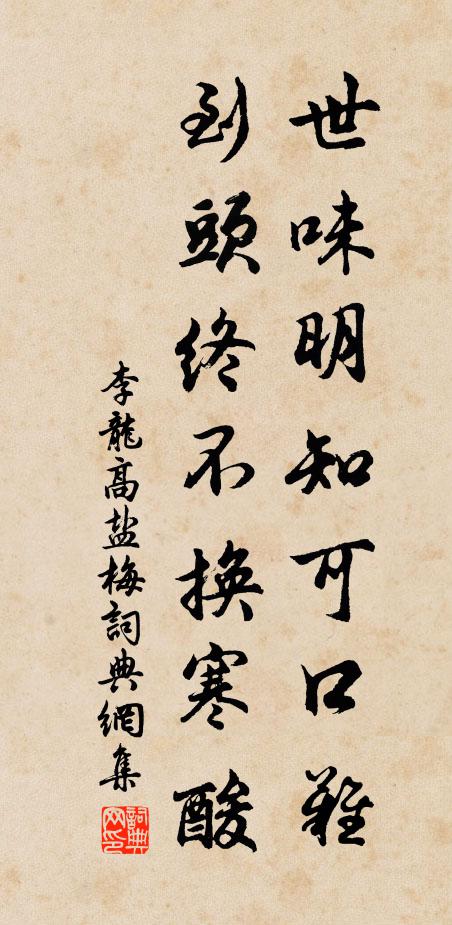 世味明知可口難
到頭終不換寒酸
李龍高盐梅詞典網集
詞典網印